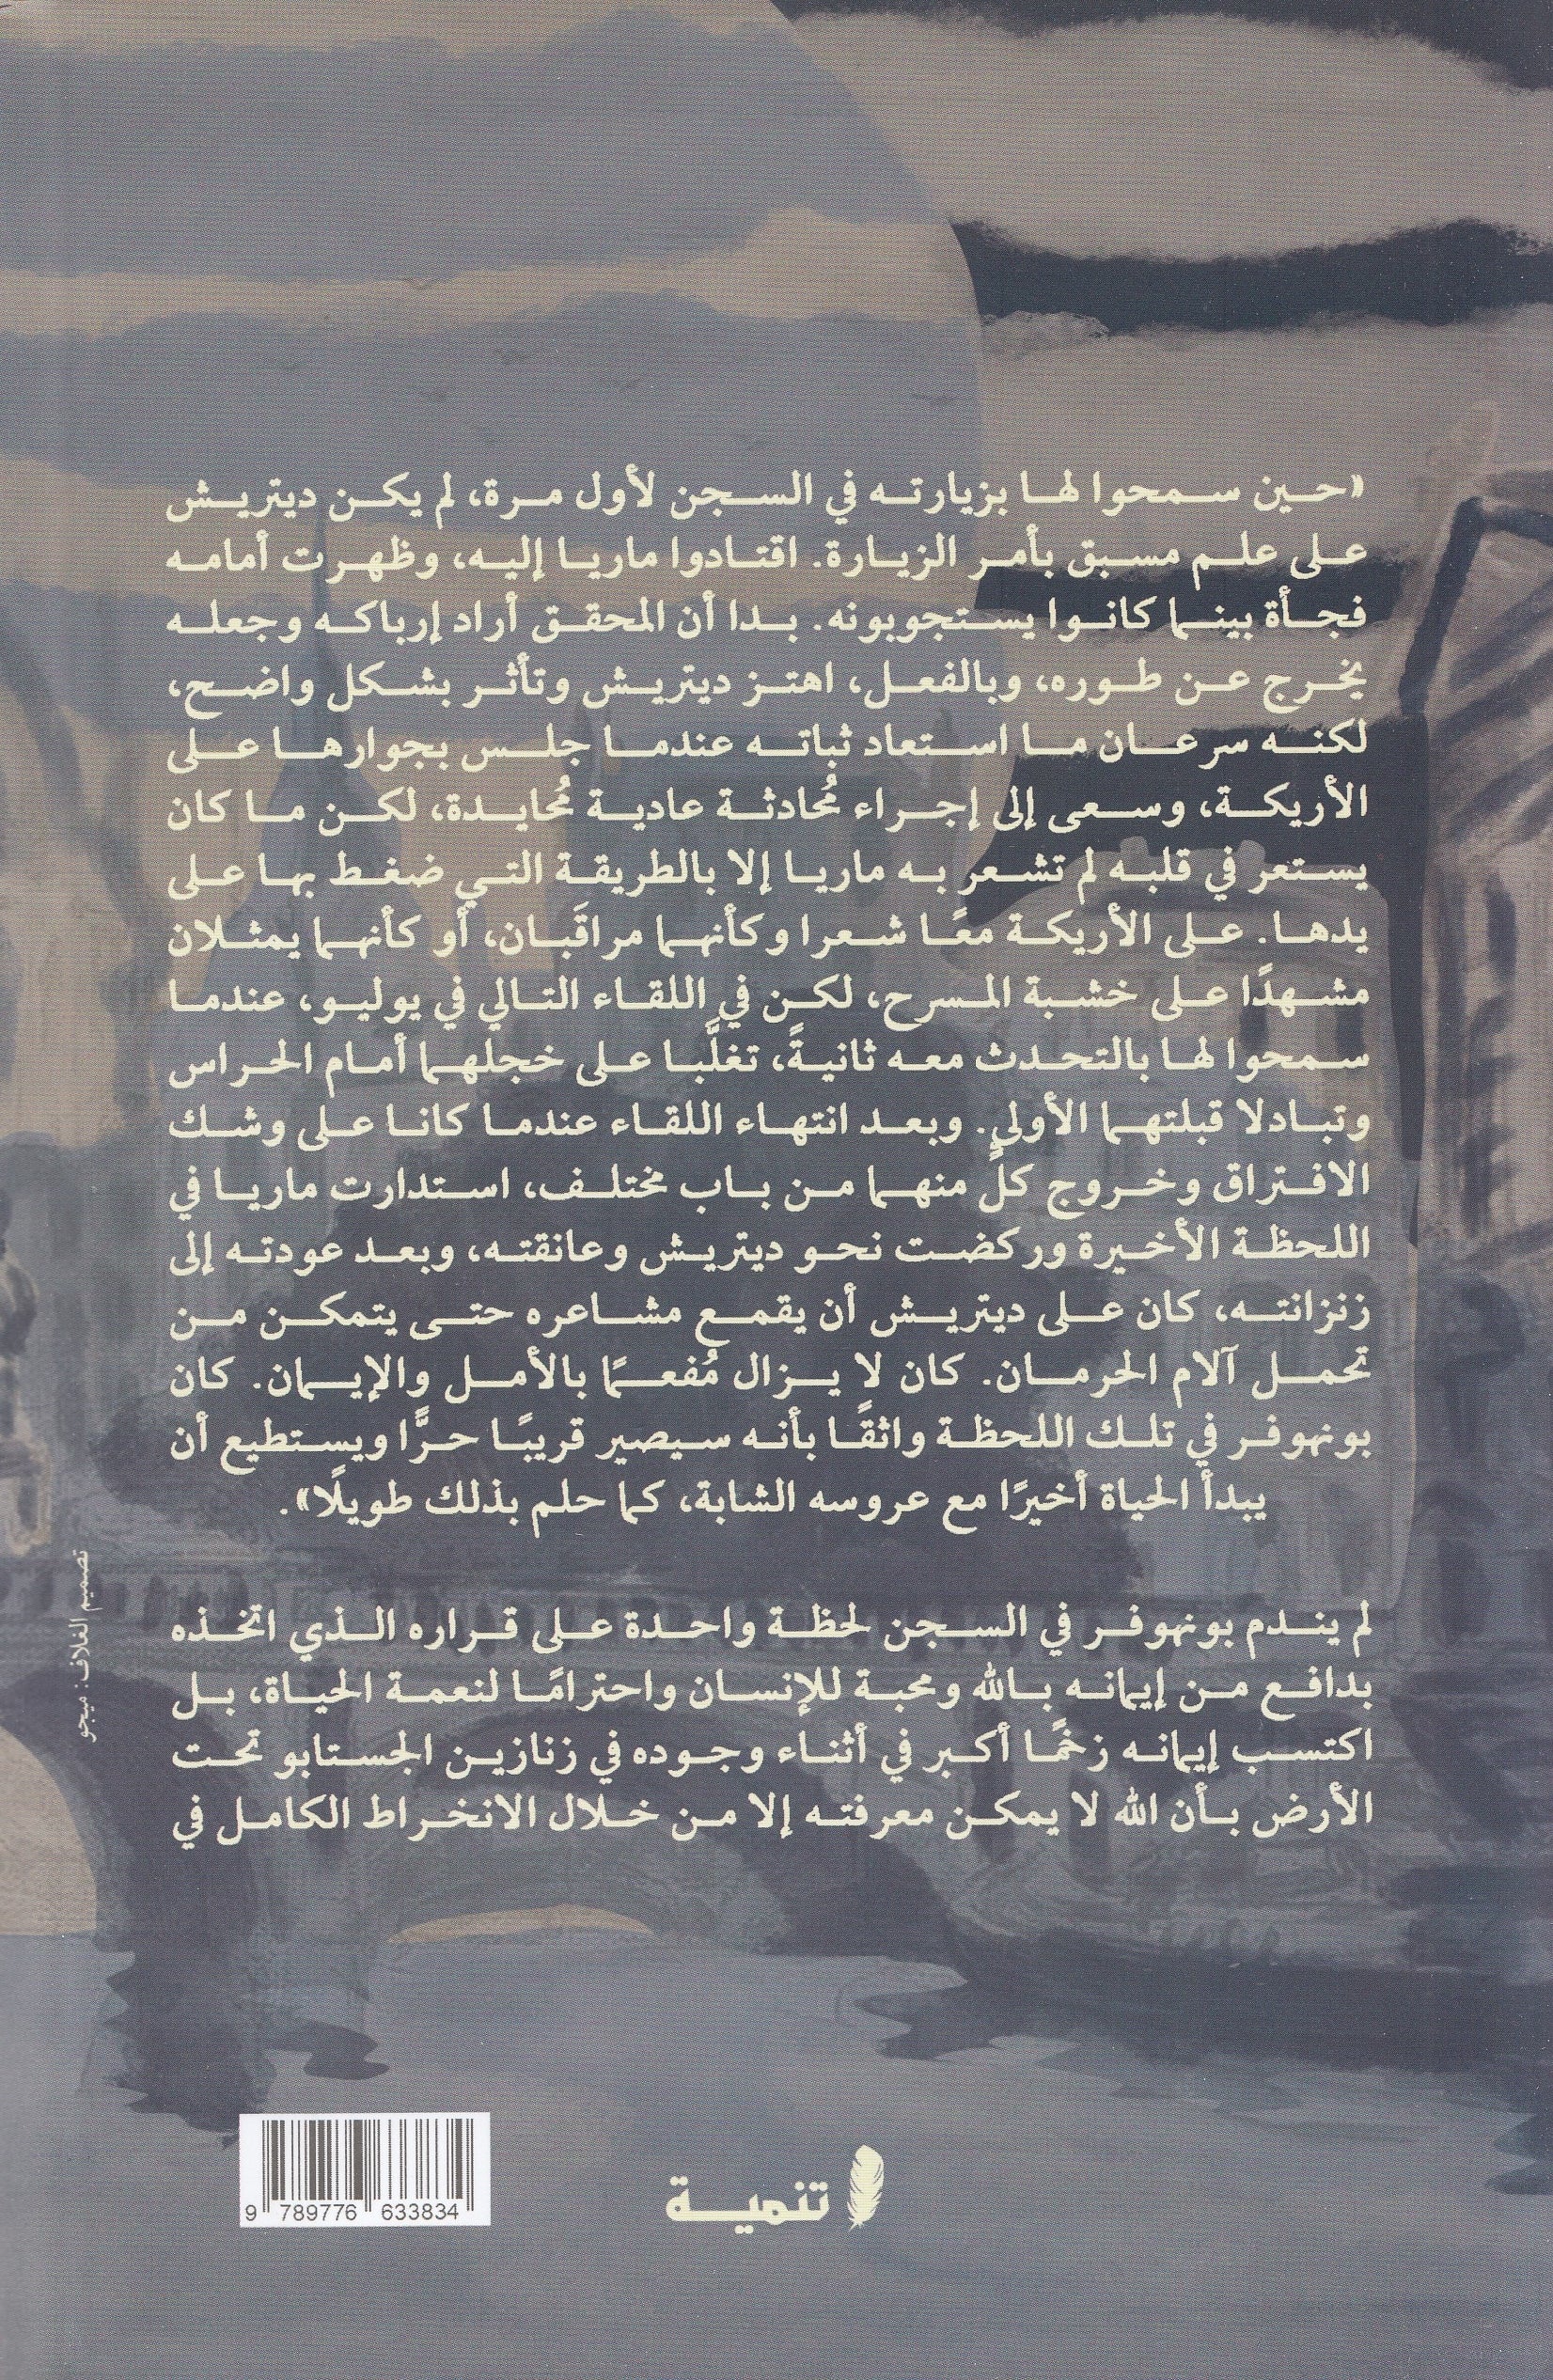 «حين سمحوا لها بزيارته في السجن لأول مرة، لم يكن ديتريش
على علم مسبق بأمر الزيارة. اقتادوا ماريا إليه، وظهرت أمامه
فجأة بينما كانوا يستجوبونه. بدا أن المحقق أراد إرباكه وجعله
يخرج عن طوره، وبالفعل، اهتز ديتريش وتأثر بشكل واضح،
لكنه سرعان ما استعاد ثباته عندما جلس بجوارها على
الأريكة، وسعى إلى إجراء مُحادثة عادية مُحايدة، لكن ما كان
يستعر في قلبه لم تشعر به ماريا إلا بالطريقة التي ضغط بها على
يدها. على الأريكة معًا شعرا وكأنهما مراقَبان، أو كأنهما يمثلان
مشهدًا على خشبة المسرح، لكن في اللقاء التالي في يوليو، عندما
سمحوا لها بالتحدث معه ثانيةً، تغلَّبا على خجلهما أمام الحراس
وتبادلا قبلتهما الأولى. وبعد انتهاء اللقاء عندما كانا على وشك
الافتراق وخروج كلٍّ منهما من باب مختلف، استدارت ماريا في
اللحظة الأخيرة وركضت نحو ديتريش وعانقته، وبعد عودته إلى
زنزانته، كان على ديتريش أن يقمع مشاعره حتى يتمكن من
تحمل آلام الحرمان. كان لا يزال مُفعمًا بالأمل والإيمان. كان
بونهوفر في تلك اللحظة واثقًا بأنه سيصير قريبًا حرًّا ويستطيع أن
يبدأ الحياة أخيرًا مع عروسه الشابة، كما حلم بذلك طويلًا».
لم يندم بونهوفر في السجن لحظة واحدة على قراره الذي اتخذه
بدافع من إيمانه بالله ومحبة للإنسان واحترامًا لنعمة الحياة، بل
اكتسب إيمانه زخمًا أكبر في أثناء وجوده في زنازين الجستابو تحت
الأرض بأن الله لا يمكن معرفته إلا من خلال الانخراط الكامل في
تصميم الغلاف: ميجو
تنمية
9 789776 633834